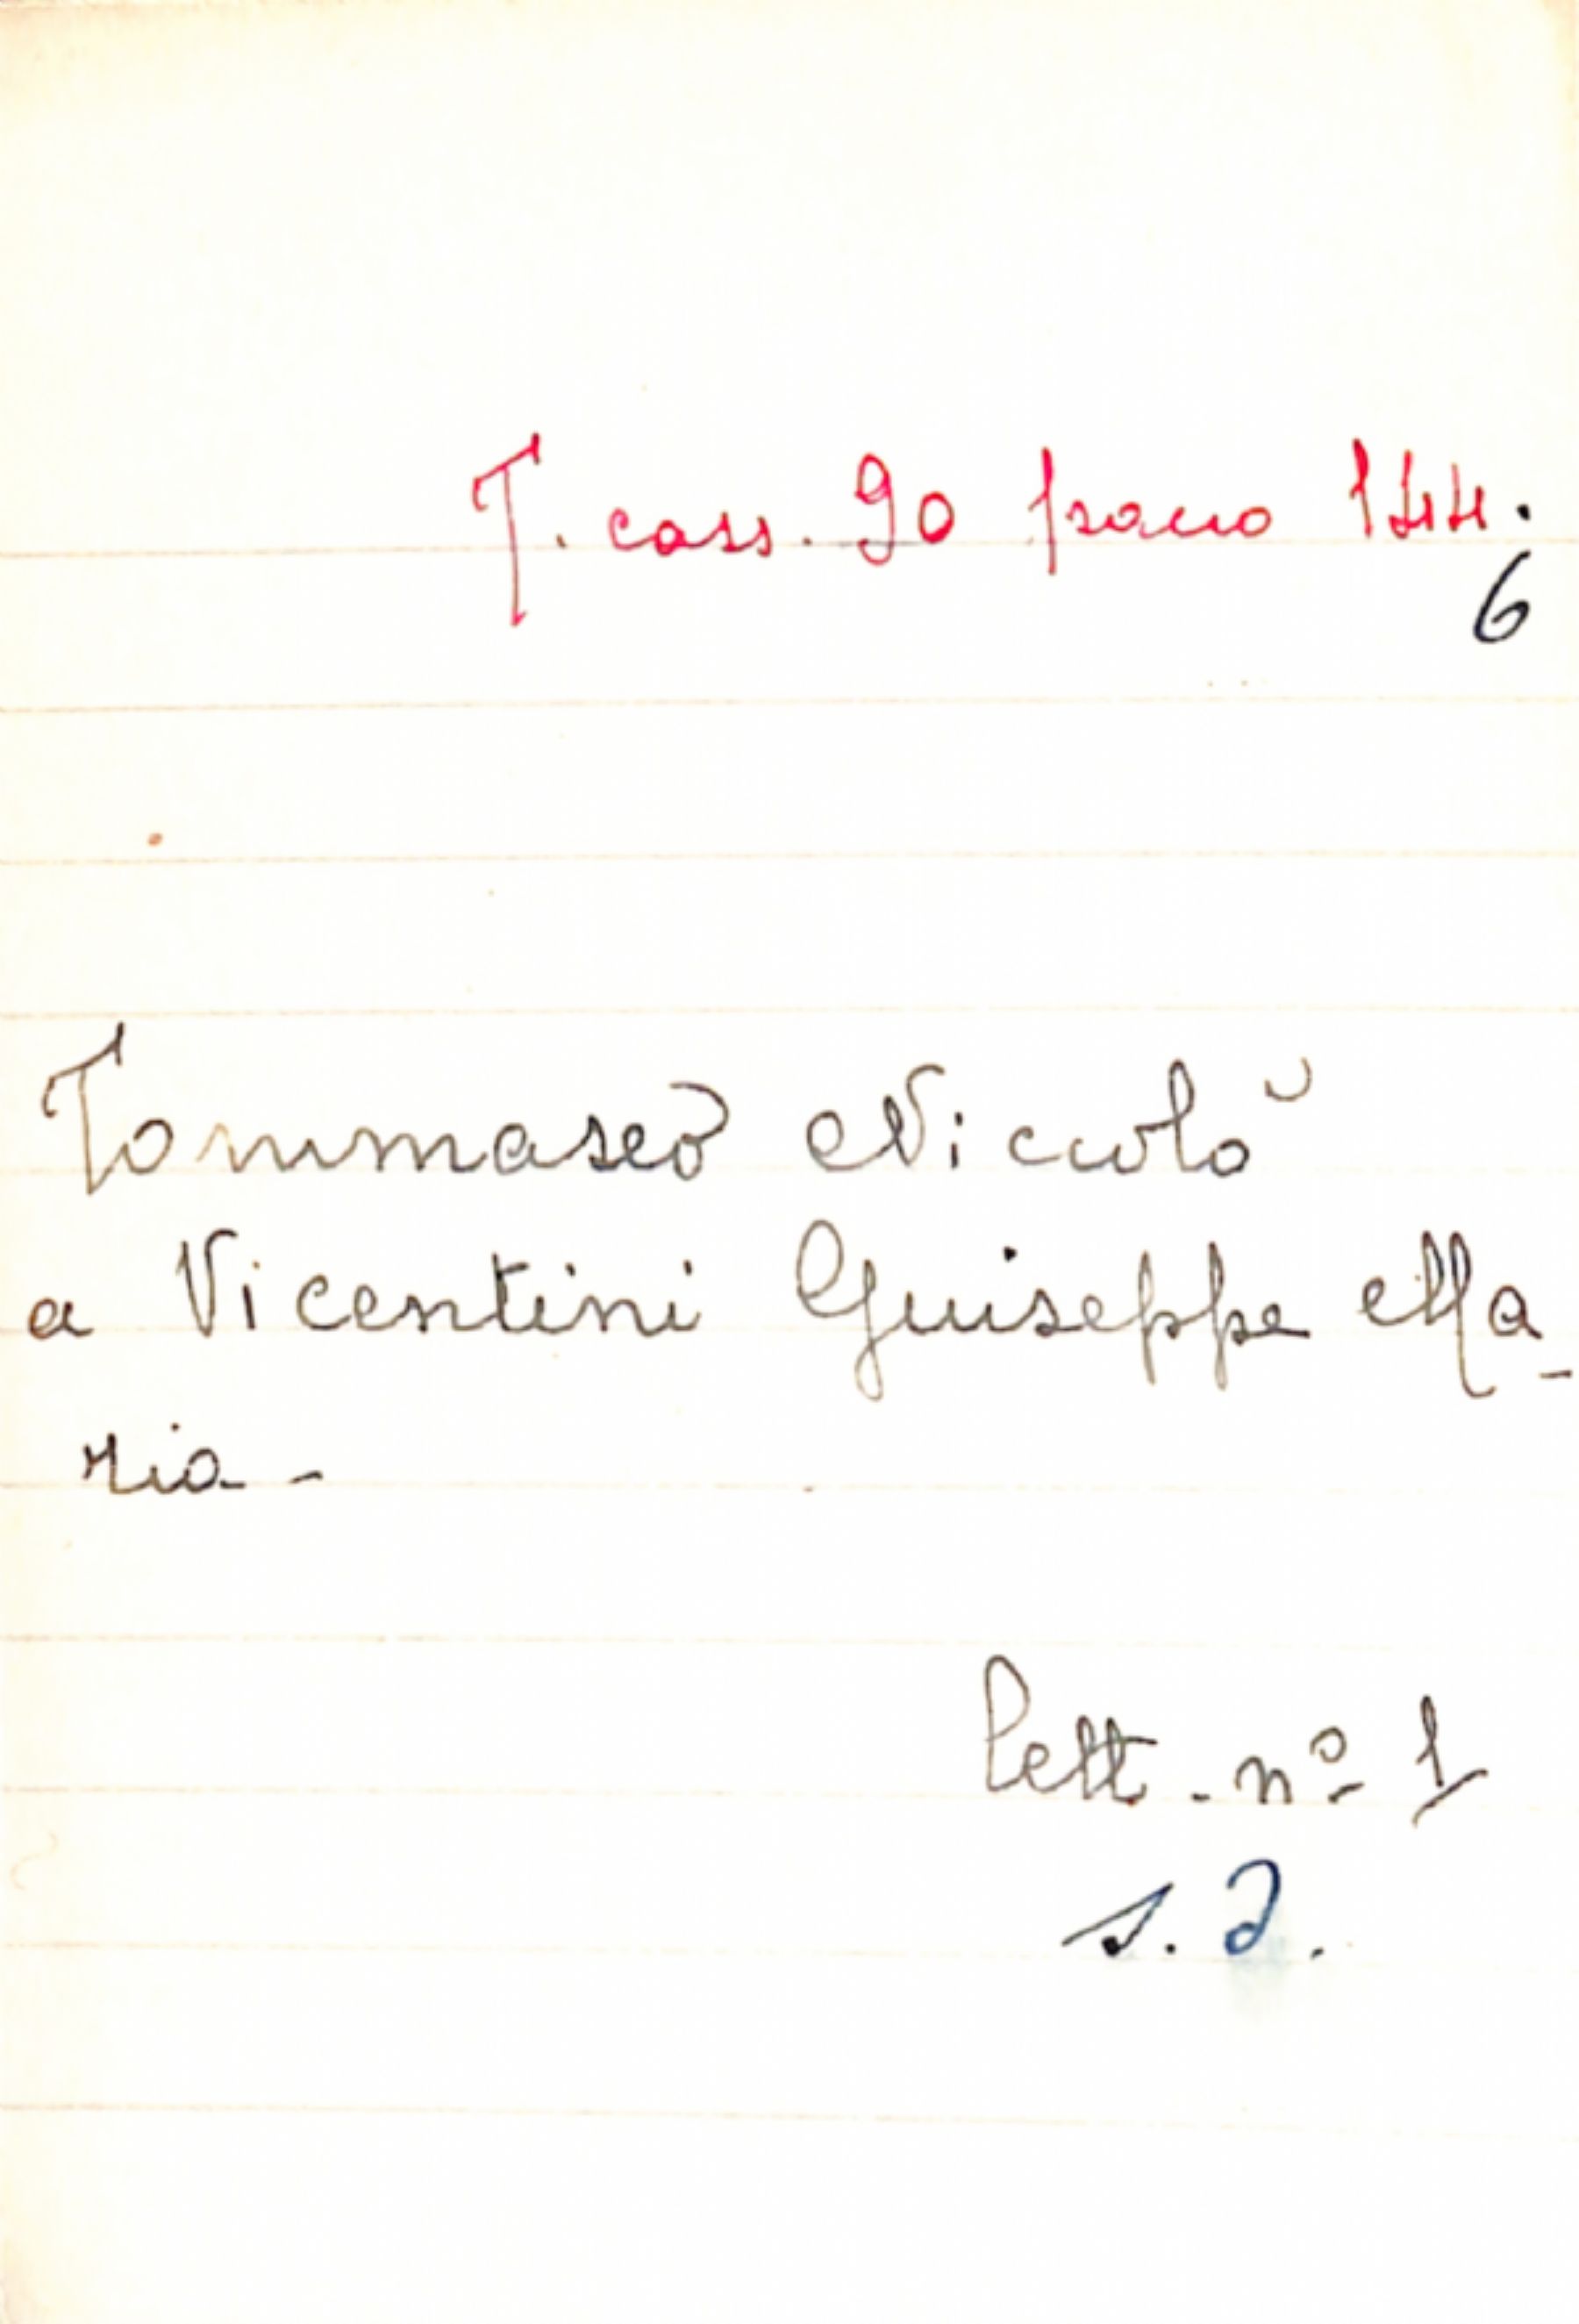 T. cass. 90 pacco 144.
6
Tommaseo Niccolò
a Vicentini Giuseppe Ma-
ria -
lett. nº 1
s. d.